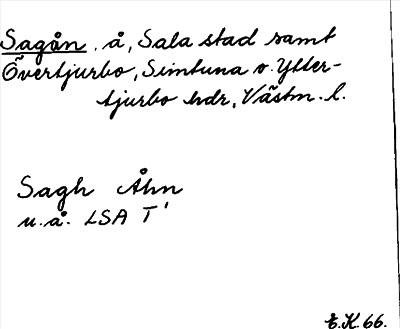 Sagån, å, Sala stad samt
Övertjurbo, Simtuna o. Ytter-
tjurbo hdr, Västm. l.
Sagh Åhn
u.å. LSA T'
E.K. 66.